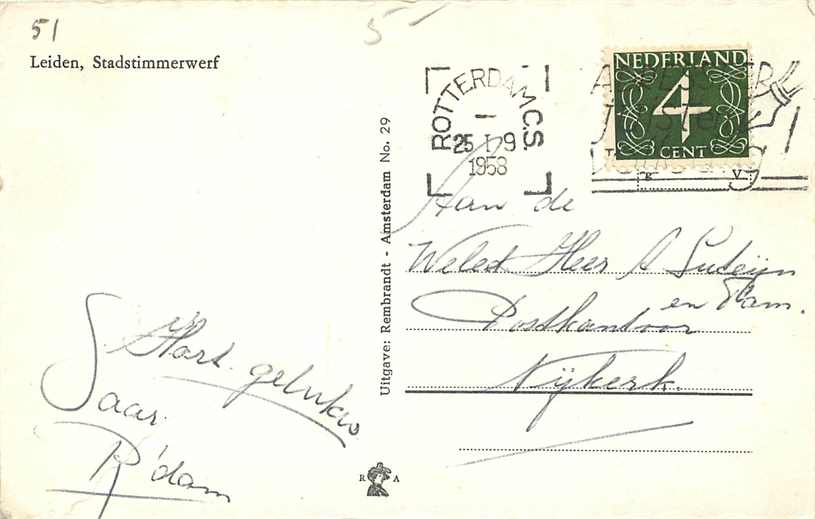 51
5
Leiden, Stadstimmerwerf
ROTTERDAM C.S.
25 I 9
1958
NEDERLAND
4
CENT
Uitgave: Rembrandt - Amsterdam No. 29
Aan de
Weled. Heer
en Fam.
Postkantoor
Nijkerk.
Hart. gelukw
Saar
R'dam
R A